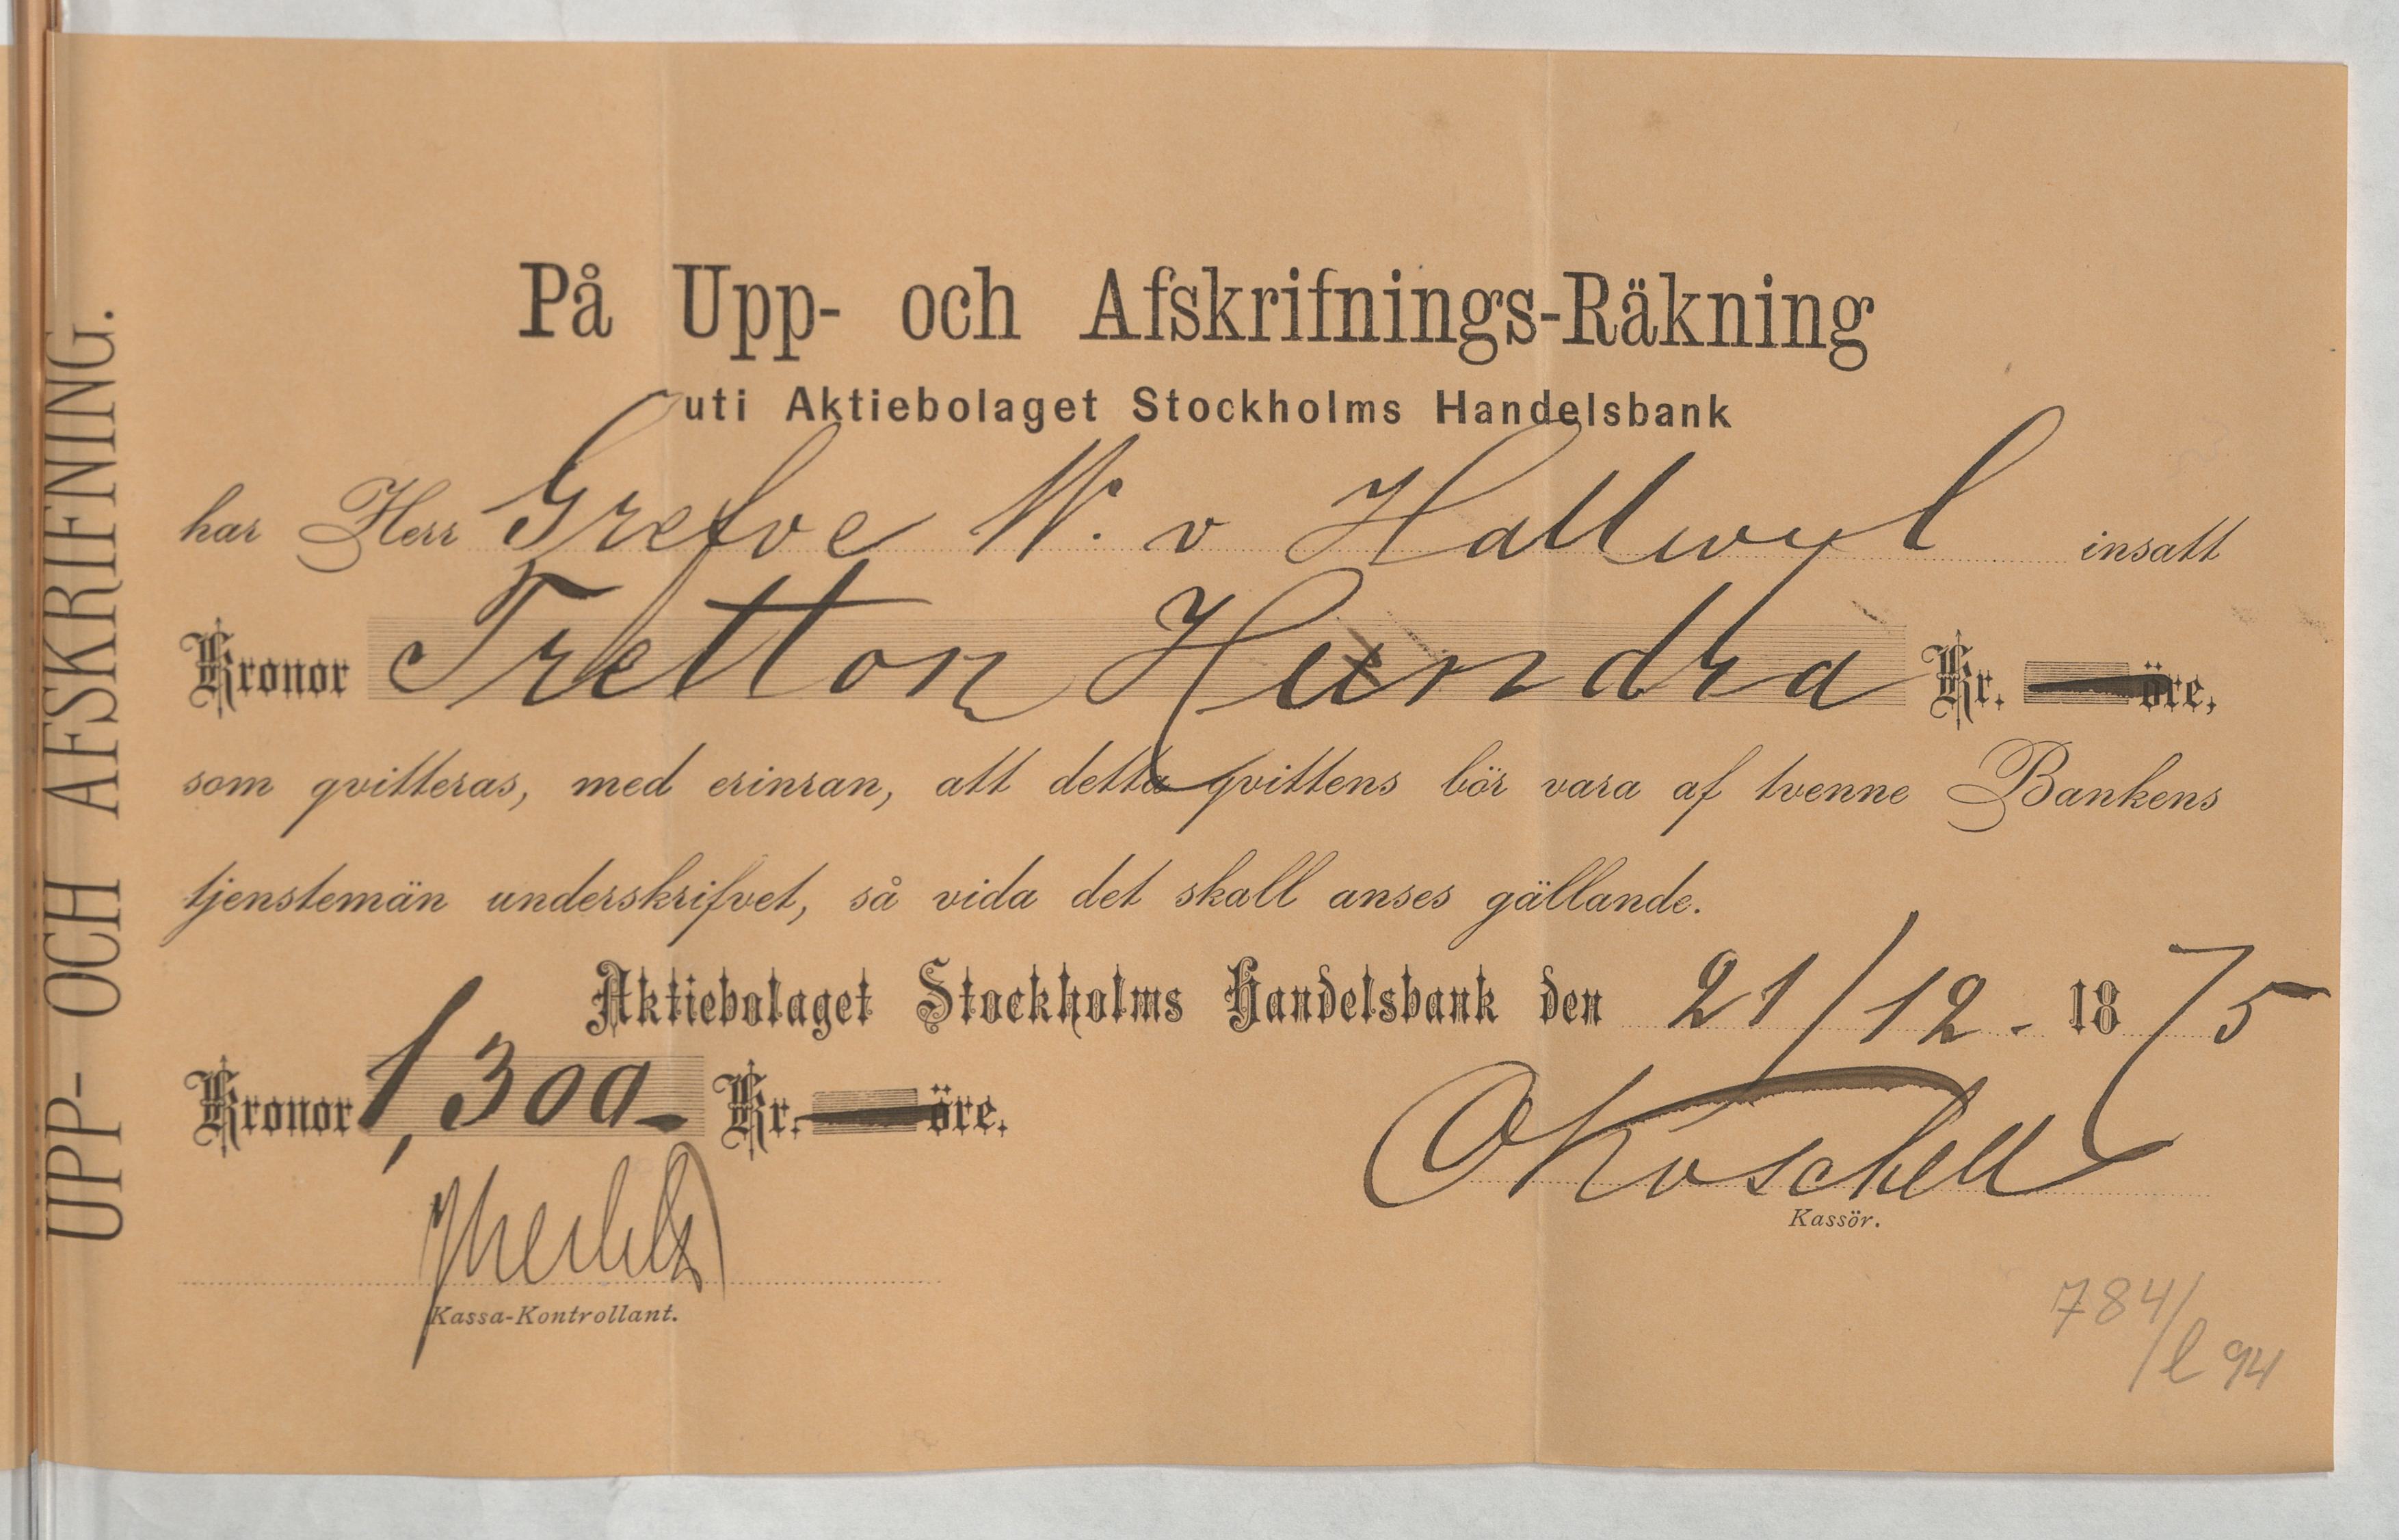 UPP- OCH AFSKRIFNING.
På Upp- och Afskrifnings-Räkning
uti Aktiebolaget Stockholms Handelsbank
har Herr Grefve W. v Hallwyl insatt
Kronor Tretton Hundra Kr. — öre,
som qvitteras, med erinran, att detta qvittens bör vara af tvenne Bankens
tjenstemän underskrifvet, så vida det skall anses gällande.
Aktiebolaget Stockholms Handelsbank den 21/12 - 1875
Kronor 1,300 - Kr. — öre.
Kassör.
Kassa-Kontrollant.
784/
/l 94